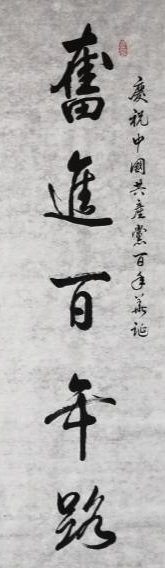 慶祝中國共產黨百年華誕
奮進百年路